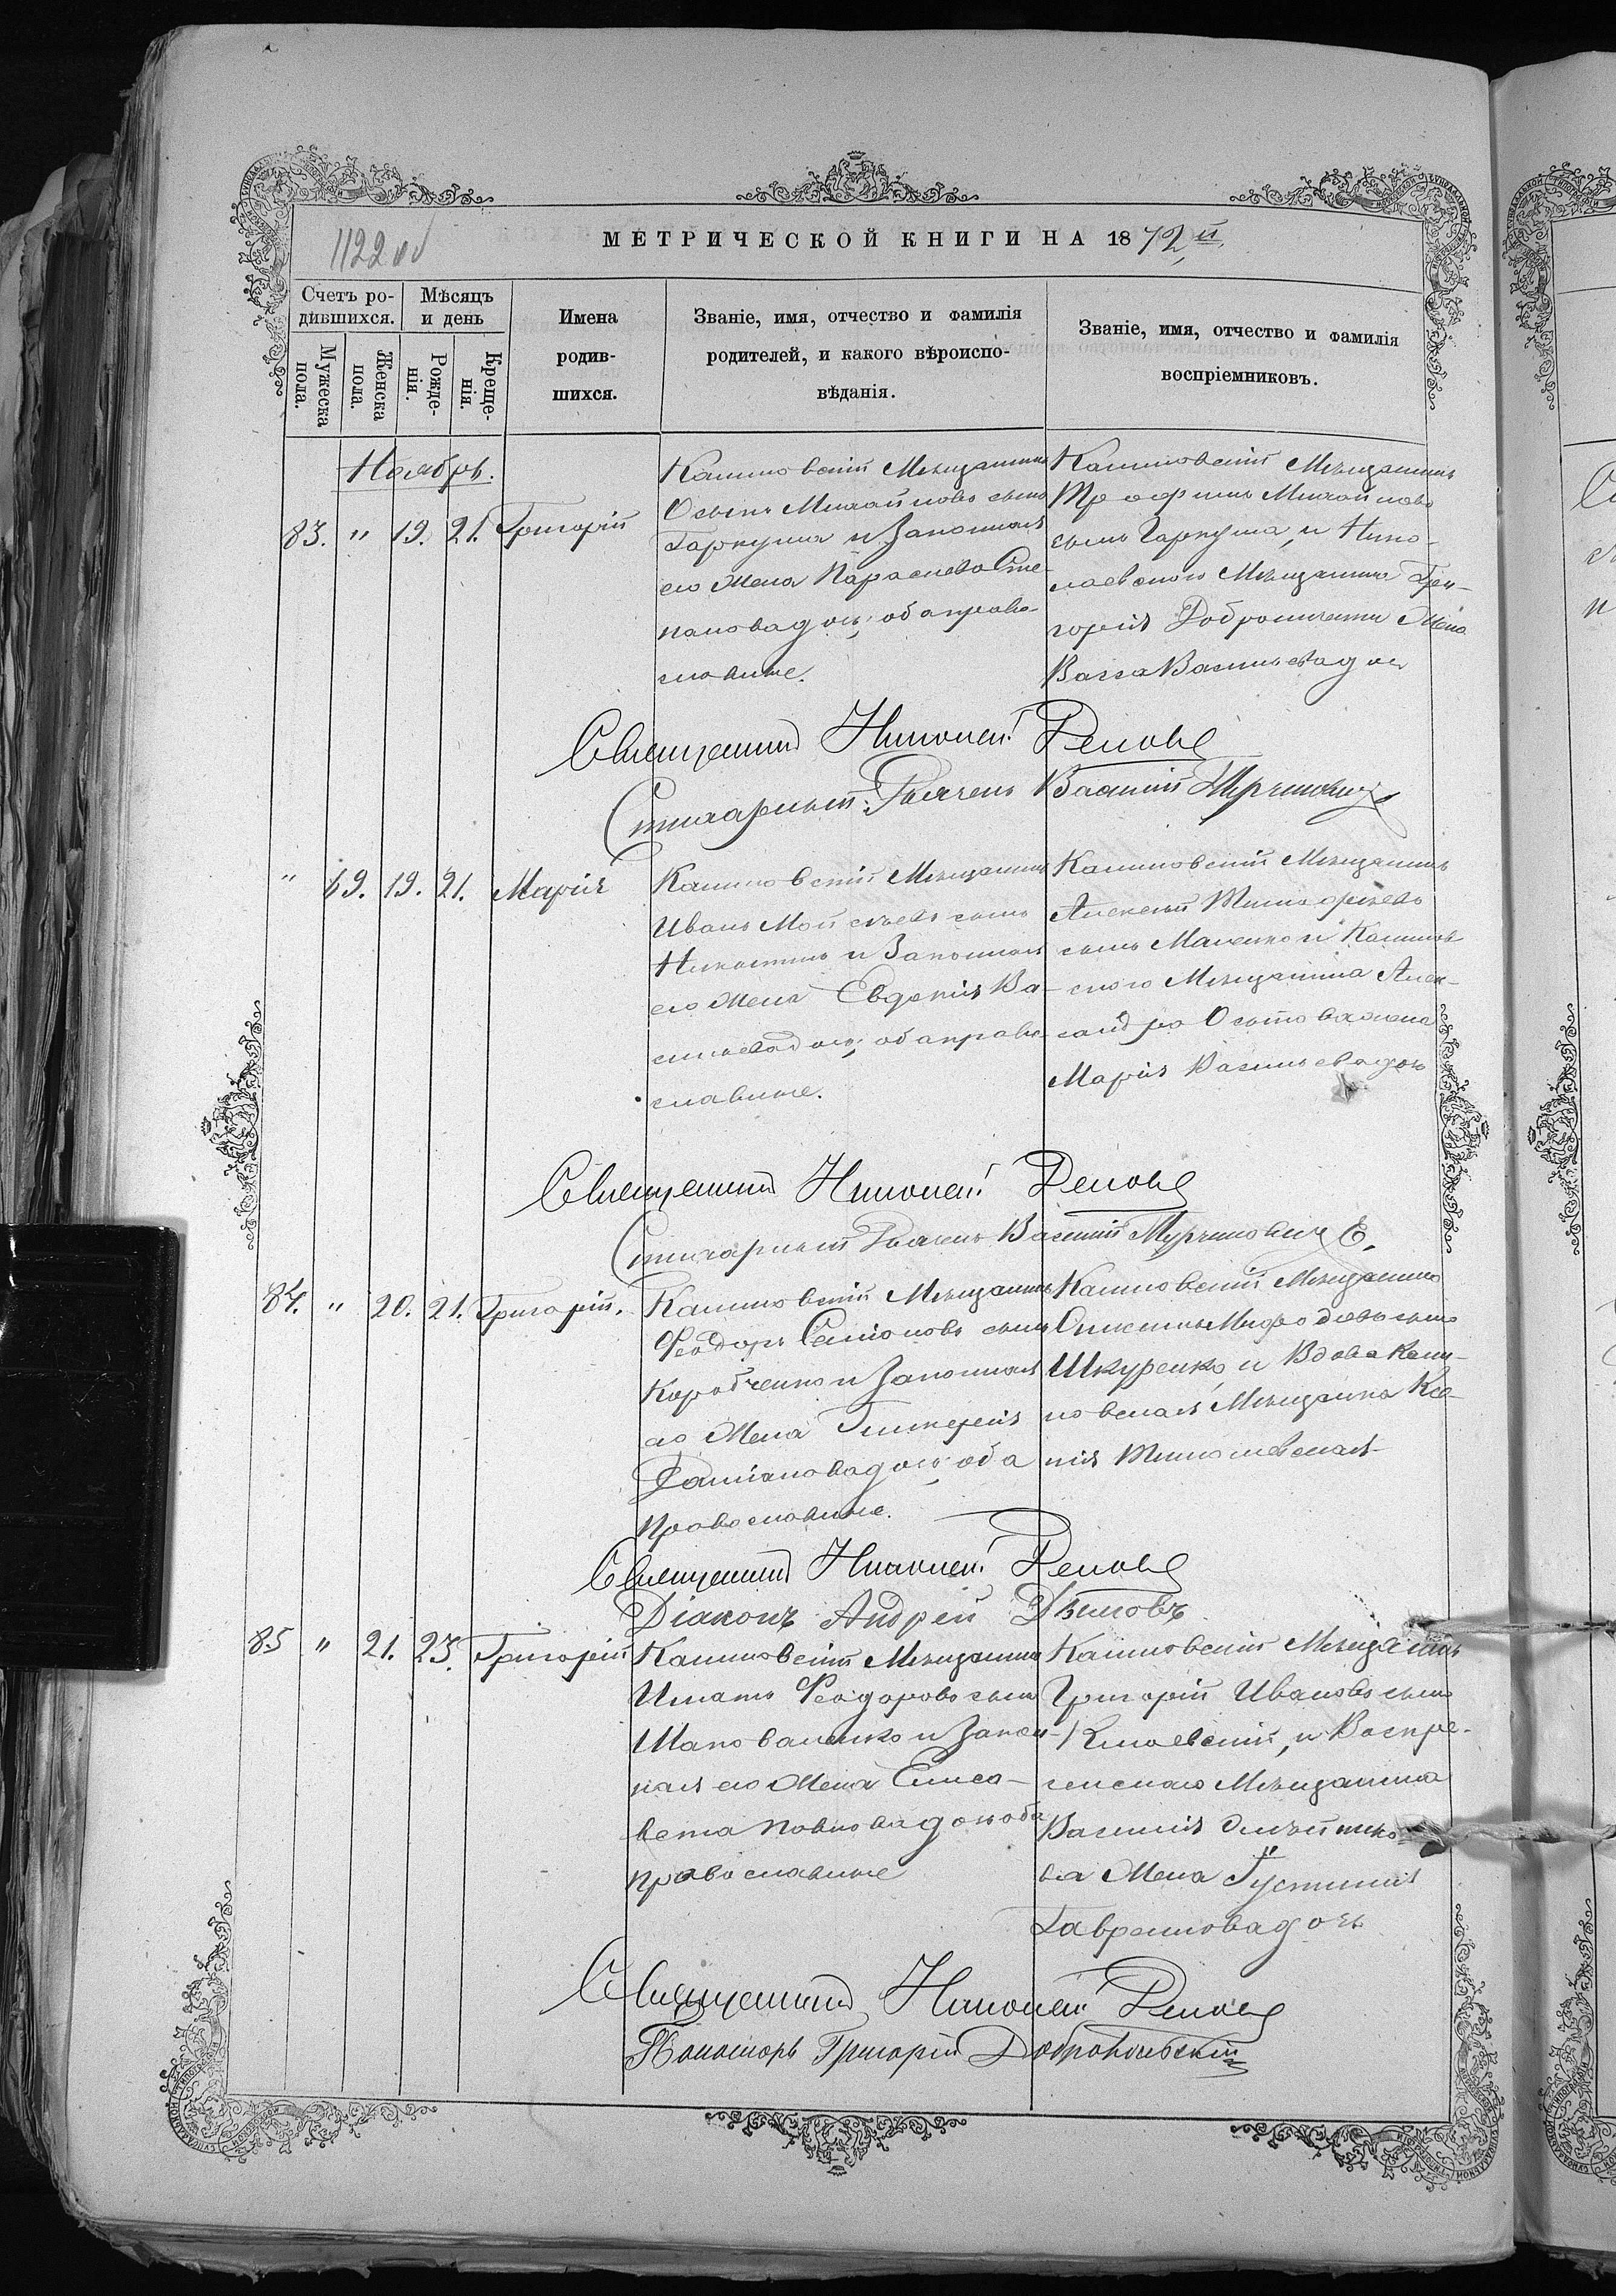 1122 об
МЕТРИЧЕСКОЙ КНИГИ НА 1872й
Счетъ ро-
дившихся.
Мѣсяцъ
и день
Мужеска
пола.
Женска
пола.
Рожде-
нія.
Креще-
нія.
Имена
родив-
шихся.
Званіе, имя, отчество и фамилія
родителей, и какого вѣроиспо-
вѣданія.
Званіе, имя, отчество и фамилія
воспріемниковъ.
Ноябрь.
83. " 19. 21. Григорій
Каховскій Мѣщанинъ
Осипъ Михайловъ сынъ
Гаркуша и Законная
его Жена Параскева Сте-
пановадочь; оба право-
славные.
Каховскій Мѣщанинъ
Трофимъ Михайловъ
сынъ Гаркуша, и Нико-
лаевского Мѣщанина Гри-
горія Жена
Васса Васильевадочь
Священникъ Николай
Стихарный Дьячекъ Василій
" 69. 19. 21. Марія
Каховскій Мѣщанинъ
Иванъ Мойсѣевъ сынъ
Никитинъ и Законная
его Жена Евдокія Ва-
сильевадочь; оба право-
славные.
Каховскій Мѣщанинъ
Алексѣй Тимофѣевъ
сынъ и Кахов-
ского Мѣщанина Алек-
сандра жена
Марія Васильевадочь
Священникъ Николай
Стихарный Дьячекъ Василій
84. " 20. 21. Григорій.
Каховскій Мѣщанинъ
Феодоръ Семіоновъ сынъ
Коробченко и Законная
его Жена Гликерія
Даміановадочь; оба
православные.
Каховскій Мѣщанинъ
сынъ
Шкуренко, и Вдова Кахо-
вская Мѣщанка Ксе-
нія
Священникъ Николай
Діаконъ Андрей
85 " 21. 23. Григорій
Каховскій Мѣщанинъ
Игнатъ Феодоровъ сынъ
Шаповаленко и Закон-
ная его Жена Елиса-
вета Павловадочь оба
православные
Каховскій Мѣщанинъ
Григорій Ивановъ сынъ
Кіловскій, и Воскре-
сенского Мѣщанина
Василія
ва Жена Іустинія
Гавриловадочь
Священникъ Николай
Пономарь Григорій Добровольскій